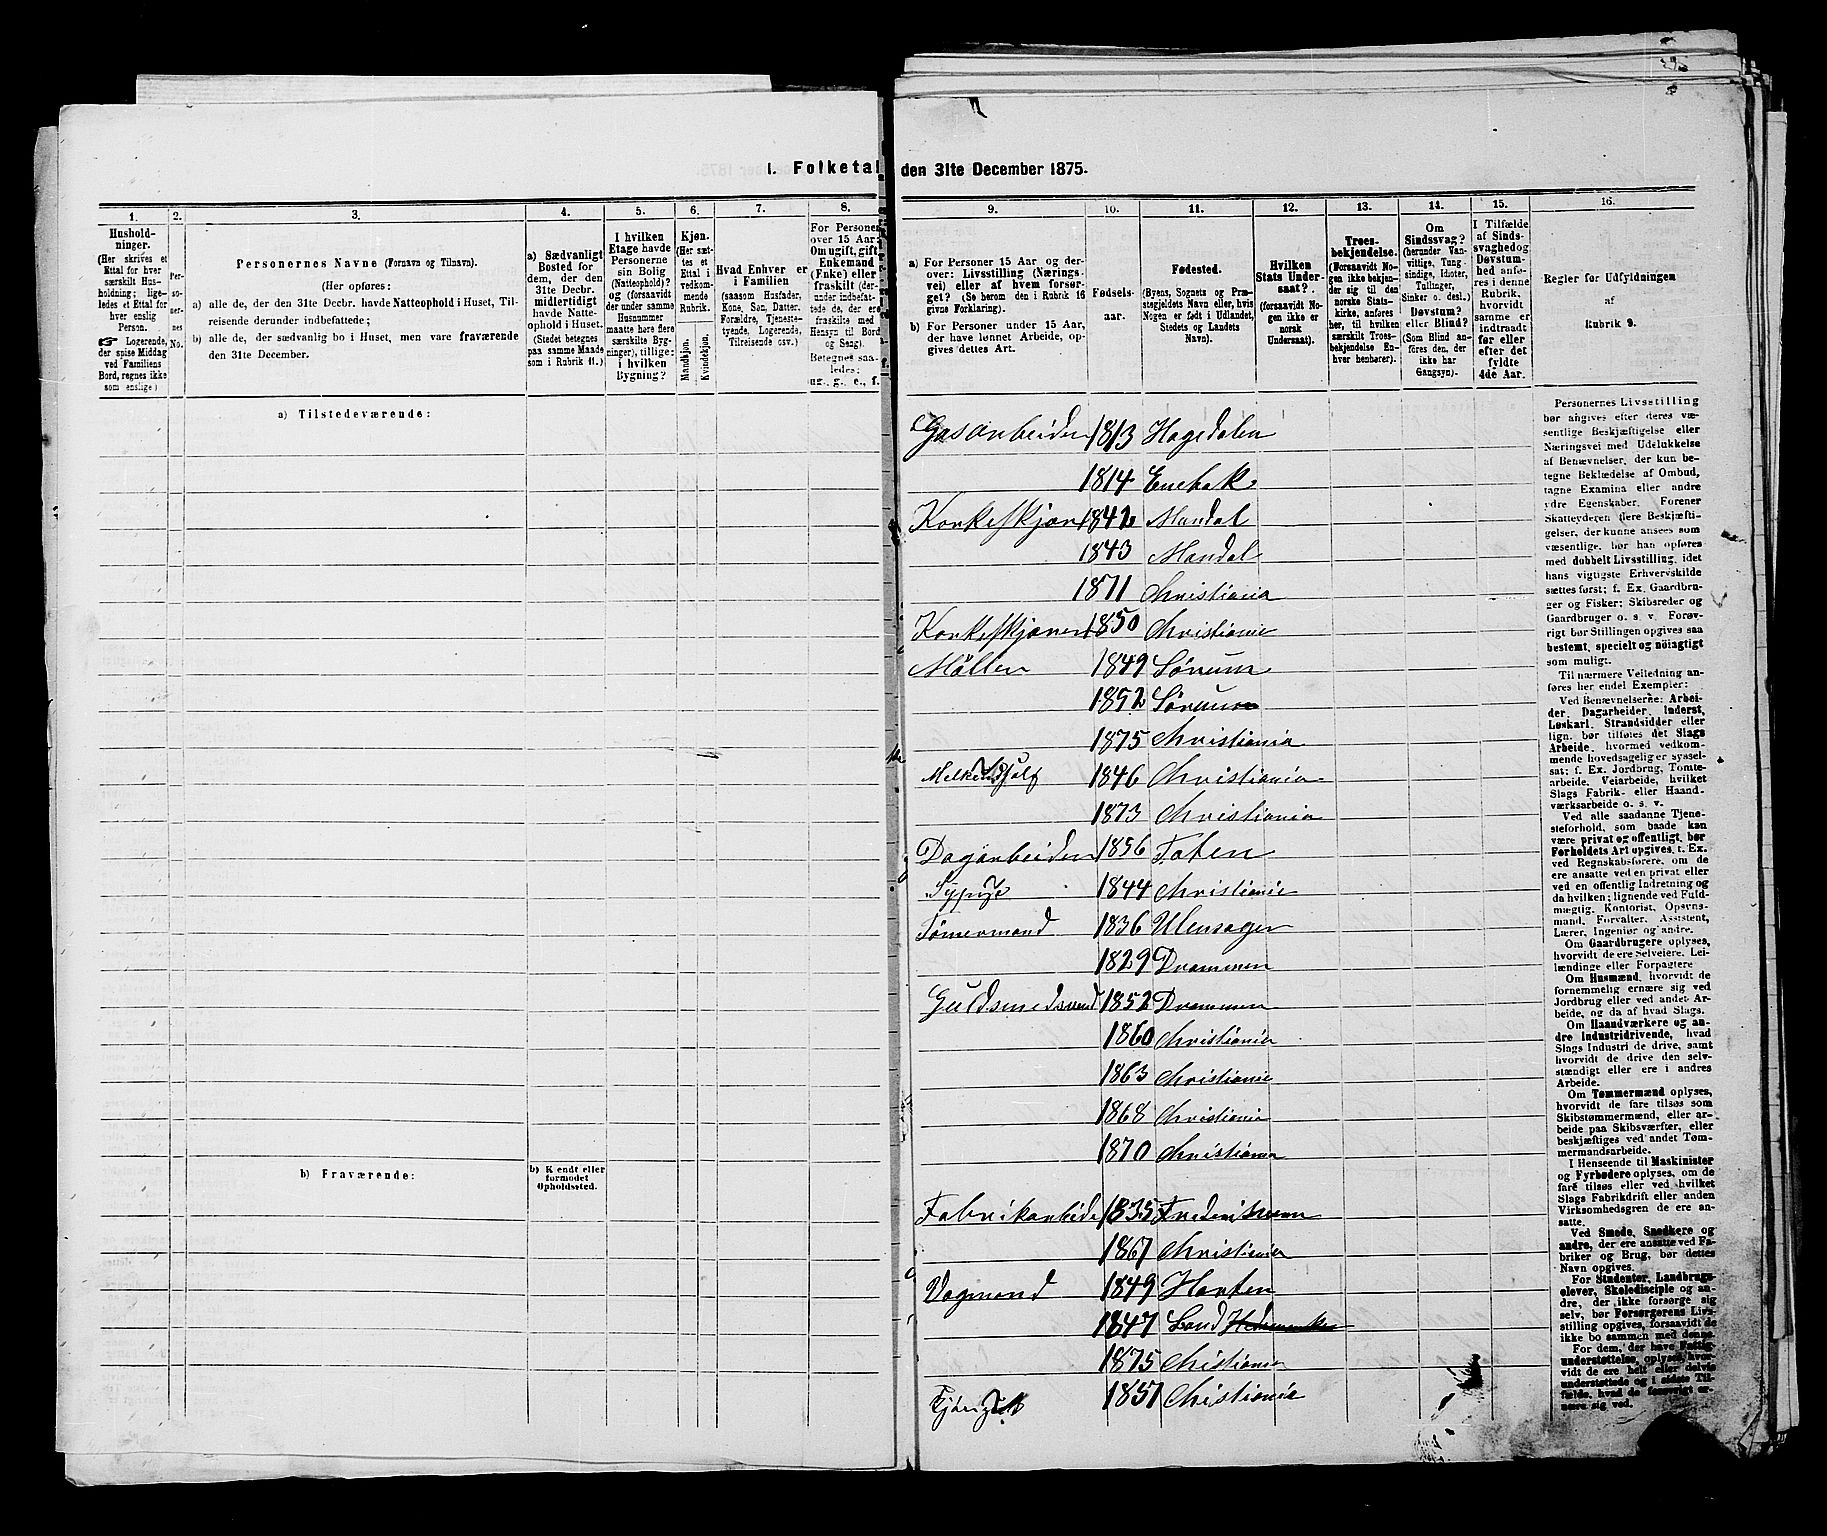 I. Folketal den 31te December 1875.
1.
Husholdninger.
(Her skrives et
Ettal for hver
særskilt Husholdning; ligeledes et Ettal for
hver enslig
Person.
☞ Logerende,
der spise Middag
ved Familiens
Bord, regnes ikke
som enslige.)
2.
Personernes
No.
3.
Personernes Navne (Fornavn og Tilnavn).
(Her opføres:
a) alle de, der den 31te Decbr. havde Natteophold i Huset, Tilreisende derunder indbefattede;
b) alle de, sædvanlig bo i Huset, men vare fraværende
den 31te December.
4.
a) Sædvanligt
Bosted for
dem, der den
31te Decbr.
midlertidigt
havde Natteophold i Huset.
(Stedet betegnes
paa samme Maade
som i Rubrik 11.)
5.
I hvilken
Etage havde
Personerne
sin Bolig
(Natteophold)?
og (forsaavidt
der under samme
Husnummer
maatte høre flere
særskilte Bygninger), tillige:
i hvilken
Bygning?
6.
Kjøn.
(Her sættes et
Ettal i
vedkommende
Rubrik.
Mandkjøn.
Kvindekjøn.
7.
Hvad Enhver er
i Familien
(saasom Husfader,
Kone, Søn, Datter,
Forældre, Tjenestetyende, Logerende,
Tilreisende osv.)
8.
For Personer
over 15 Aar:
Om ugift, gift,
Enkemand
(Enke) eller
fraskilt
Betegnes saaledes:
ug., g., e., f.
9.
a) For Personer 15 Aar og derover: Livsstilling (Næringsvei) eller af hvem forsørget? (Se herom den i Rubrik 16
givne Forklaring).
b) For Personer under 15 Aar,
der have lønnet Arbeide, opgives dettes Art.
10.
Fødselsaar.
11.
Fødested.
(Byens, Sognets og Præstegjeldets Navn eller, hvis
Nogen er født i Udlandet,
Stedets og Landets
Navn).
12.
Hvilken
Stats Undersaat?
(forsaavidt Nogen ikke er
norsk
Undersaat).
13.
Troesbekjendelse.
(Forsaavidt Nogen ikke bekjender sig til den
norske Statskirke, anføres
her, til hvilken
særskilt Troesbekjendelse Enhver henhører).
14.
Om
Sindssvag?
(herunder Vanvittige, Tungsindige, Idioter,
Tullinger,
Sinker o. desl.)
Døvstum?
eller Blind?
(Som Blind anføres den, der
ikke har
Gangsyn).
15.
I Tilfælde
af Sindssvaghed og
Døvstumhed anføres i denne
Rubrik,
hvorvidt
samme er
indtraadt
før eller
efter det
fyldte
4de Aar.
16.
Regler for Udfyldningen
af
Rubrik 9.
a) Tilstedeværende:
b) Fraværende:
b) Kjendt eller
formodet
Opholdssted.
Gasarbeider 1813 Hagedalen
1814 Enebak
Korkeskjær 1842 Mandal
1843 Mandal
1871 Christiania
Korkeskjærer 1850 Christiania
Møller 1849 Sørum
1852 Sørum
1875 Christiania
1846 Christiania
1873 Christiania
Dagarbeider 1856 Toten
Sypige 1844 Christiania
Tømermand 1836 Ulensager
1829 Drammen
Guldsmedsvend 1852 Drammen
1860 Christiania
1863 Christiania
1868 Christiania
1870 Christiania
Fabrikarbeide 1835
1867 Christiania
Vogmand 1849
1847 Land Hedemarken
1875 Christiania
1851 Christiania
Personernes Livsstilling
bør angives efter deres væsentlige Beskjæftigelse eller
Næringsvei med Udelukkelse
af Benævnelser, der kun betegne Beklædelse af Ombud,
tagne Examina eller andre
ydre Egenskaber. Forener
Skatteyderen flere Beskjæftigelser, der kunne ansees som
væsentlige, bør han opføres
med dobbelt Livsstilling, idet
hans vigtigste Erhvervskilde
sættes først; f. Ex. Gaardbruger og Fisker; Skibsreder og
Gaardbruger o. s. v. Forøvrigt bør Stillingen opgives saa
bestemt, specielt og nöiagtigt
som muligt.
Til nærmere Veiledning anføres her endel Exempler:
Ved Benævnelserne: Arbeider, Dagarbeider, Inderst,
Løskarl, Strandsidder eller
lign. bør tilføies det Slags
Arbeide, hvormed vedkommende hovedsagelig er sysselsat; f. Ex. Jordbrug, Tomtearbeide, Veiarbeide, hvilket
Slags Fabrik- eller Haandværksarbeide o. s. v.
Ved alle saadanne Tjenesteforhold, som baade kan
være privat og offentligt, bør
Forholdets Art opgives, t. Ex.
ved Regnskabsførere, om de
ere ansatte ved en privat eller
ved en offentlig Indretning og
da hvilken; lignende ved Fuldmægtig, Kontorist, Opsynsmand, Forvalter, Assistent,
Lærer, Ingeniør og andre.
Om Gaardbrugere oplyses,
hvorvidt de ere Selveiere, Leilændinge eller Forpagtere
Om Husmænd, hvorvidt de
fornemmelig ernære sig ved
Jordbrug eller ved andet Arbeide, og da af hvad Slags.
Om Haandværkere og andre Industridrivende, hvad
Slags Industri de drive, samt
hvorvidt de drive den selvstændigt eller ere i andres
Arbeide.
Om Tømmermænd oplyses,
hvorvidt de fare tilsøs som
Skibstømmermænd, eller arbeide paa Skibsværfter, eller
beskjæftiges ved andet Tømmermandsarbeide.
I Henseende til Maskinister
og Fyrbødere oplyses, om de
fare tilsøs eller ved hvilket
Slags Fabrikdrift eller anden
Virksomhedsgren de ere ansatte.
Ved Smede, Snedkere og
andre, der ere ansatte ved Fabriker og Brug, bør dettes
Navn opgives.
For Studenter, Landbrugselever, Skoledisciple og andre, der ikke forsørge sig
selv, bør Forsørgerens Livsstilling opgives, forsaavidt de
ikke bo sammen med denne.
For dem, der have Fattigunderstøttelse, oplyses, hvorvidt de ere helt eller delvis
understøttede og i sidste Tilfælde, hvad de forøvrigt ernære sig ved.